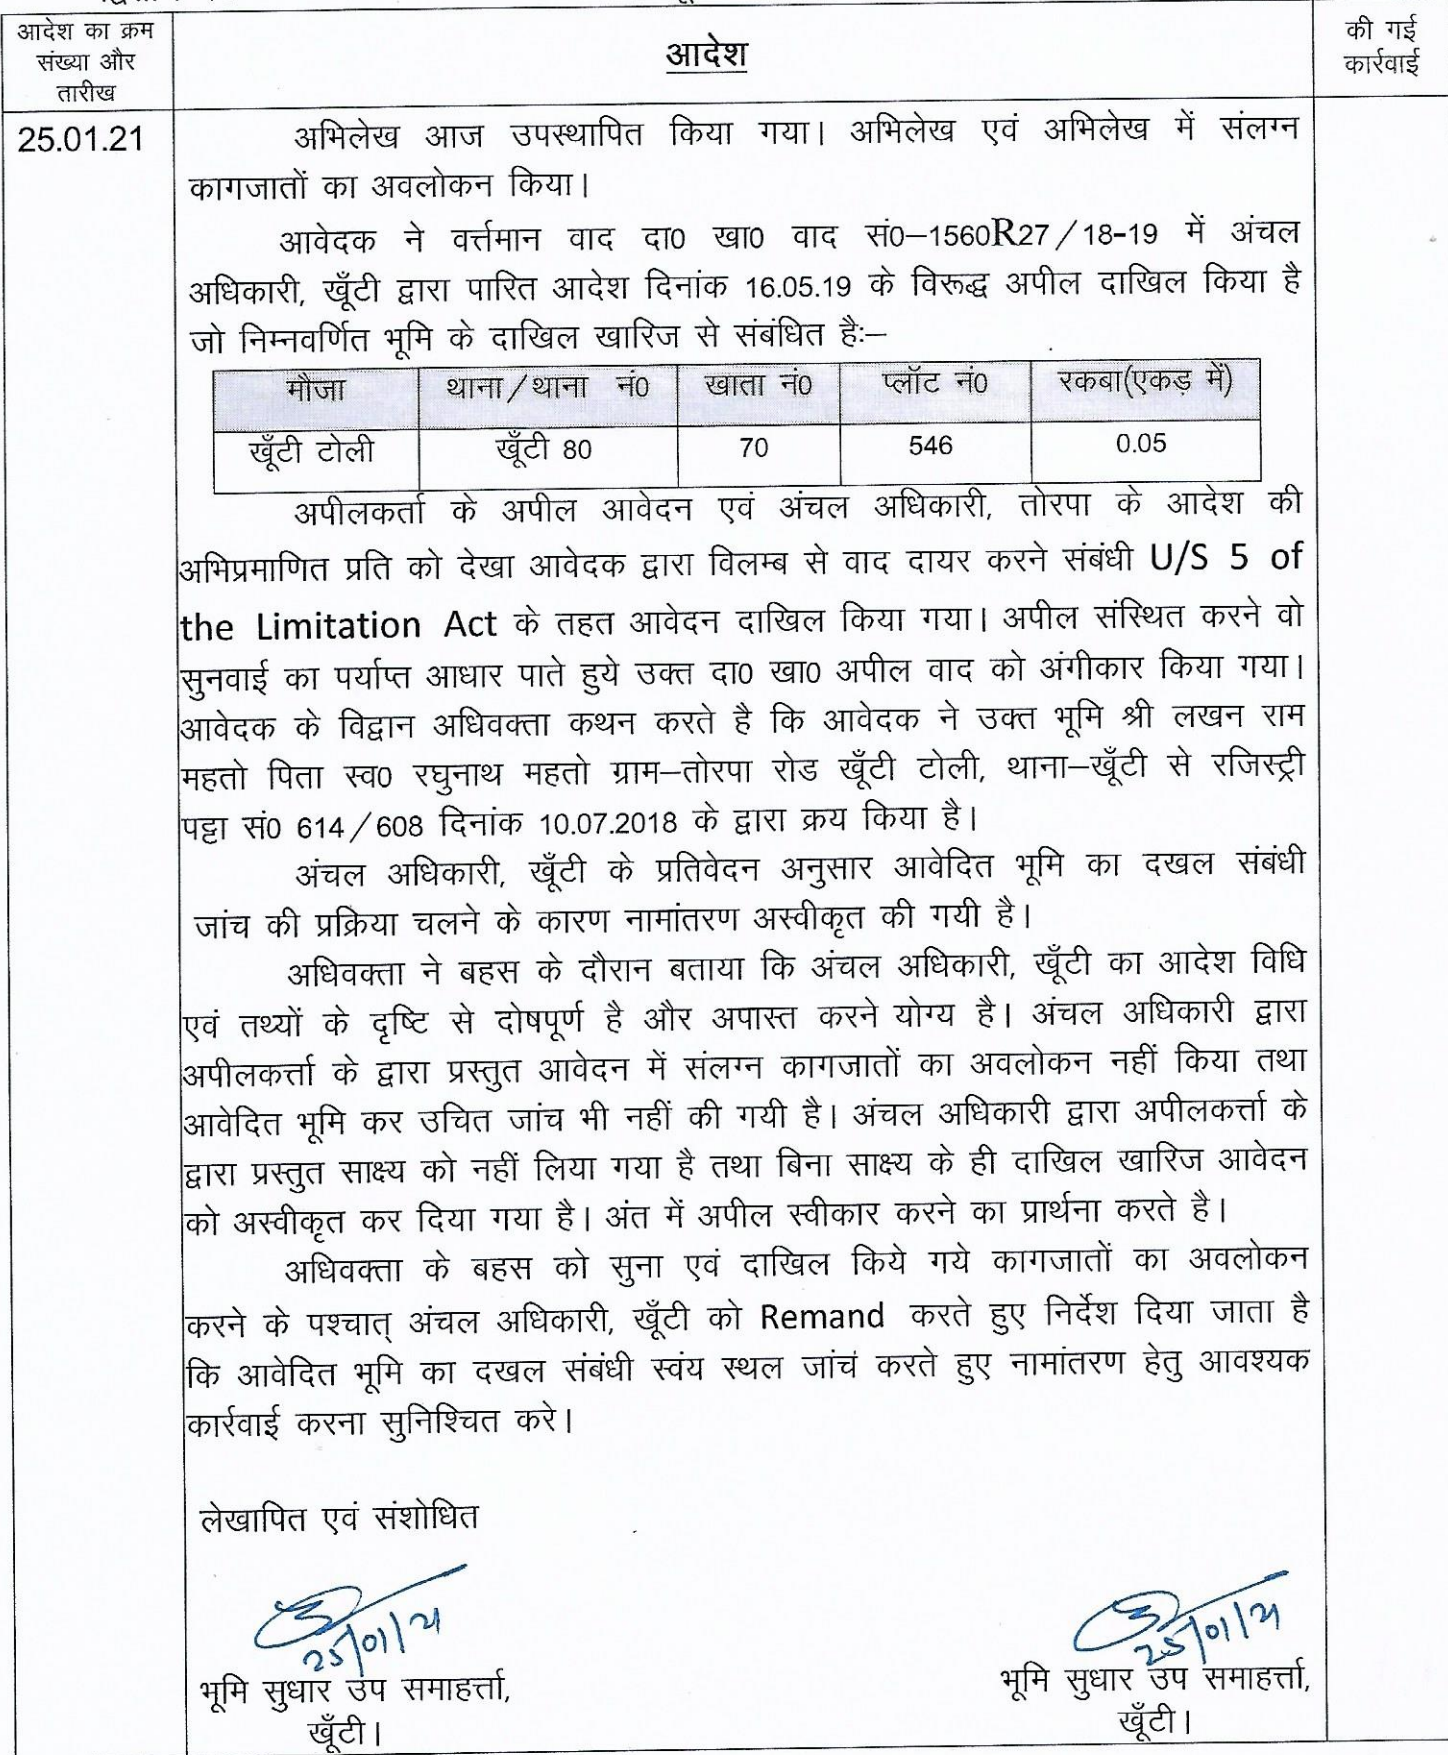 आदेश का क्रम
संख्या और
तारीख
आदेश
की गई
कार्रवाई
25.01.21
अभिलेख आज उपस्थापित किया गया। अभिलेख एवं अभिलेख में संलग्न
कागजातों का अवलोकन किया।
आवेदक ने वर्त्तमान वाद दा0 खा0 वाद सं0–1560R27/18-19 में अंचल
अधिकारी, खूँटी द्वारा पारित आदेश दिनांक 16.05.19 के विरूद्ध अपील दाखिल किया है
जो निम्नवर्णित भूमि के दाखिल खारिज से संबंधित हैः–
मौजा थाना/थाना नं0 खाता नं0 प्लॉट नं0 रकबा(एकड़ में)
खूँटी टोली खूँटी 80 70 546 0.05
अपीलकर्ता के अपील आवेदन एवं अंचल अधिकारी, तोरपा के आदेश की
अभिप्रमाणित प्रति को देखा आवेदक द्वारा विलम्ब से वाद दायर करने संबंधी U/S 5 of
the Limitation Act के तहत आवेदन दाखिल किया गया। अपील संस्थित करने वो
सुनवाई का पर्याप्त आधार पाते हुये उक्त दा0 खा0 अपील वाद को अंगीकार किया गया।
आवेदक के विद्वान अधिवक्ता कथन करते है कि आवेदक ने उक्त भूमि श्री लखन राम
महतो पिता स्व0 रघुनाथ महतो ग्राम–तोरपा रोड खूँटी टोली, थाना–खूँटी से रजिस्ट्री
पट्टा सं0 614/608 दिनांक 10.07.2018 के द्वारा क्रय किया है।
अंचल अधिकारी, खूँटी के प्रतिवेदन अनुसार आवेदित भूमि का दखल संबंधी
जांच की प्रक्रिया चलने के कारण नामांतरण अस्वीकृत की गयी है।
अधिवक्ता ने बहस के दौरान बताया कि अंचल अधिकारी, खूँटी का आदेश विधि
एवं तथ्यों के दृष्टि से दोषपूर्ण है और अपास्त करने योग्य है। अंचल अधिकारी द्वारा
अपीलकर्त्ता के द्वारा प्रस्तुत आवेदन में संलग्न कागजातों का अवलोकन नहीं किया तथा
आवेदित भूमि कर उचित जांच भी नहीं की गयी है। अंचल अधिकारी द्वारा अपीलकर्त्ता के
द्वारा प्रस्तुत साक्ष्य को नहीं लिया गया है तथा बिना साक्ष्य के ही दाखिल खारिज आवेदन
को अस्वीकृत कर दिया गया है। अंत में अपील स्वीकार करने का प्रार्थना करते है।
अधिवक्ता के बहस को सुना एवं दाखिल किये गये कागजातों का अवलोकन
करने के पश्चात् अंचल अधिकारी, खूँटी को Remand करते हुए निर्देश दिया जाता है
कि आवेदित भूमि का दखल संबंधी स्वंय स्थल जांच करते हुए नामांतरण हेतु आवश्यक
कार्रवाई करना सुनिश्चित करे।
लेखापित एवं संशोधित
25/01/21 25/01/21
भूमि सुधार उप समाहर्त्ता, भूमि सुधार उप समाहर्त्ता,
खूँटी। खूँटी।